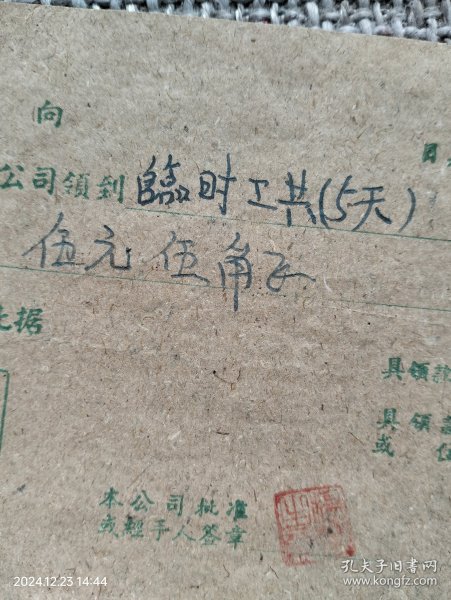 向
公司領到臨时工共(5天)
伍元伍角正
据
具領
具領
或
本公司批准
或經手人签章
2024.12.23 14:44
孔夫子旧书网
www.kongfz.com